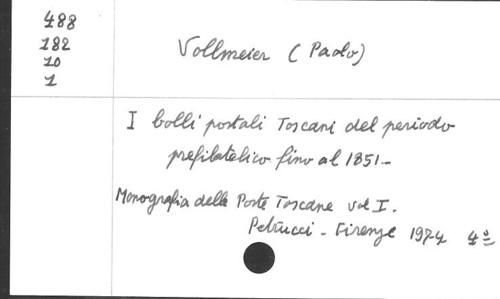 488
182
10
1
Vollmeier (Paolo)
I bolli postali Toscani del periodo
prefilatelico fino al 1851-
Monografia delle Poste Toscane vol I.
Petrucci - Firenze 1974 4º